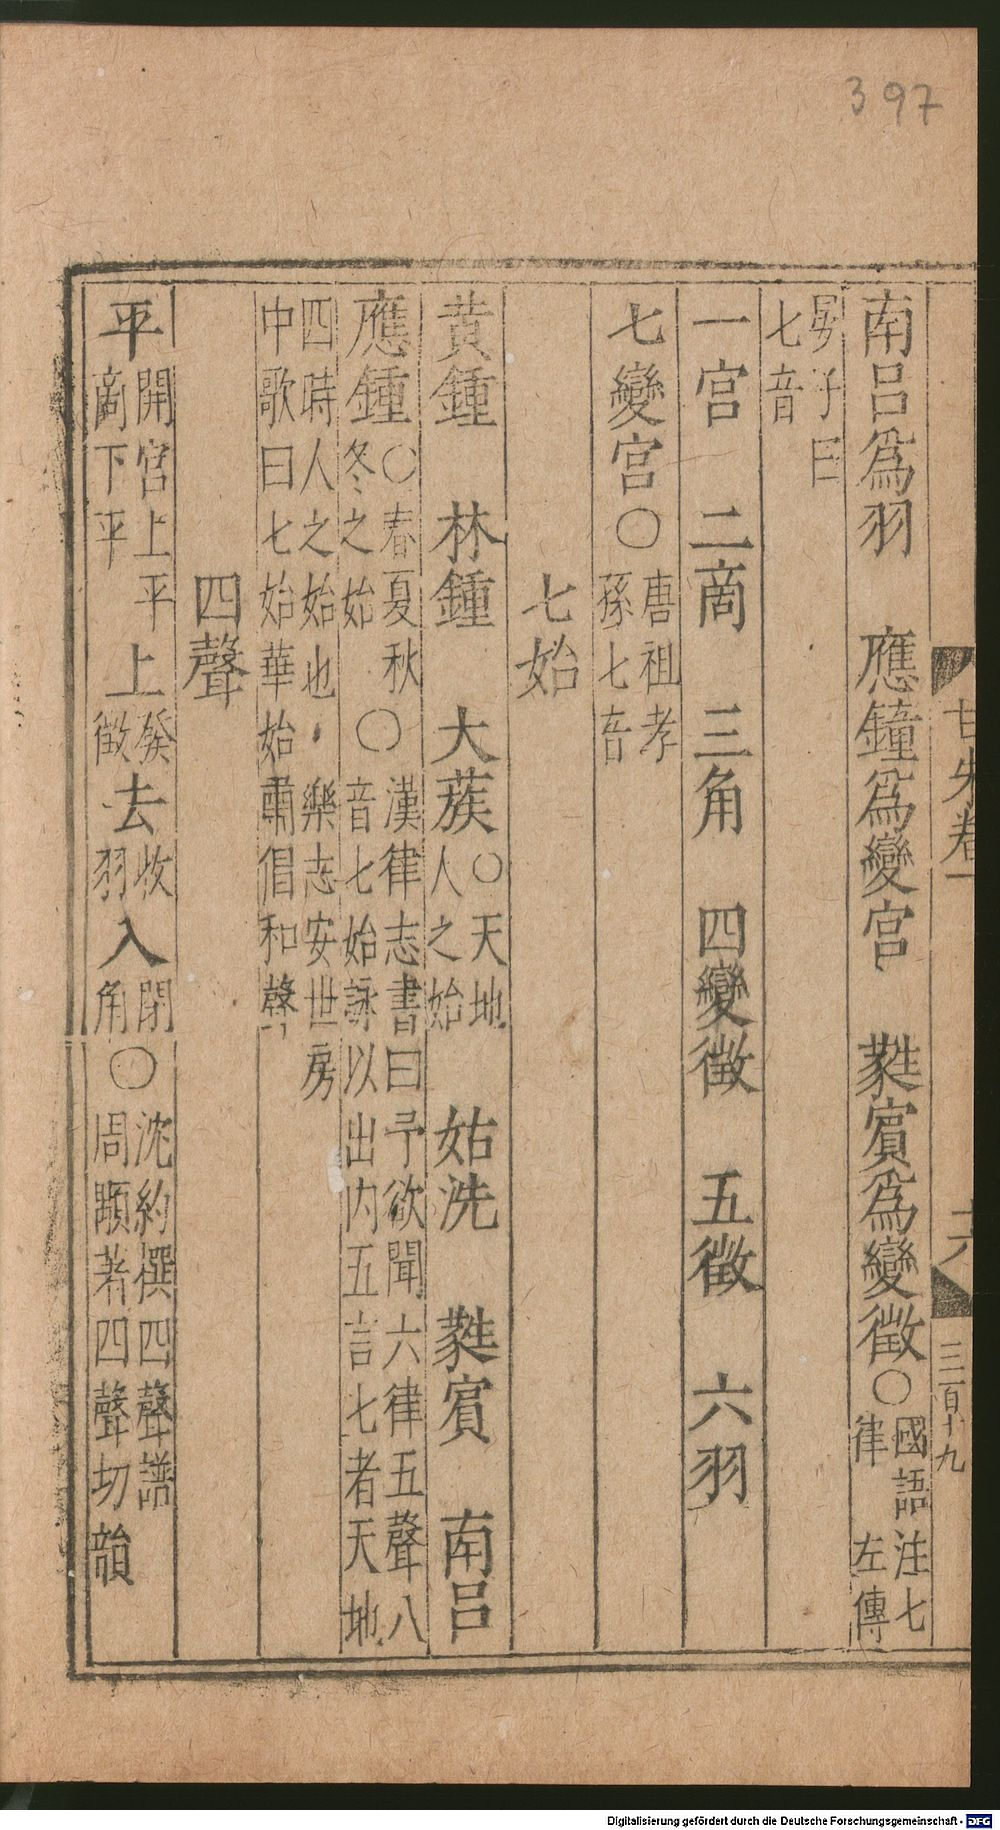 397
南呂爲羽　應鐘爲變宮　蕤賓爲變徵〇國語注七律　左傳
晏子曰七音
一宮　二商　三角　四變徵　五徵　六羽
七變宮〇唐祖孝孫七音
七始
黄鍾　林鍾　大蔟〇天地人之始　姑洗　蕤賓　南呂
應鍾〇春夏秋冬之始〇漢律志書曰予欲聞六律五聲八音七始詠以出内五言七者天地
四時人之始也　樂志安世房中歌曰七始華始肅倡和聲
四聲
平開宮上平商下平上發徵去收羽入閉角〇沈約撰四聲譜周顒著四聲切韻
卷一
六
三百十九
Digitalisierung gefördert durch die Deutsche Forschungsgemeinschaft - DFG